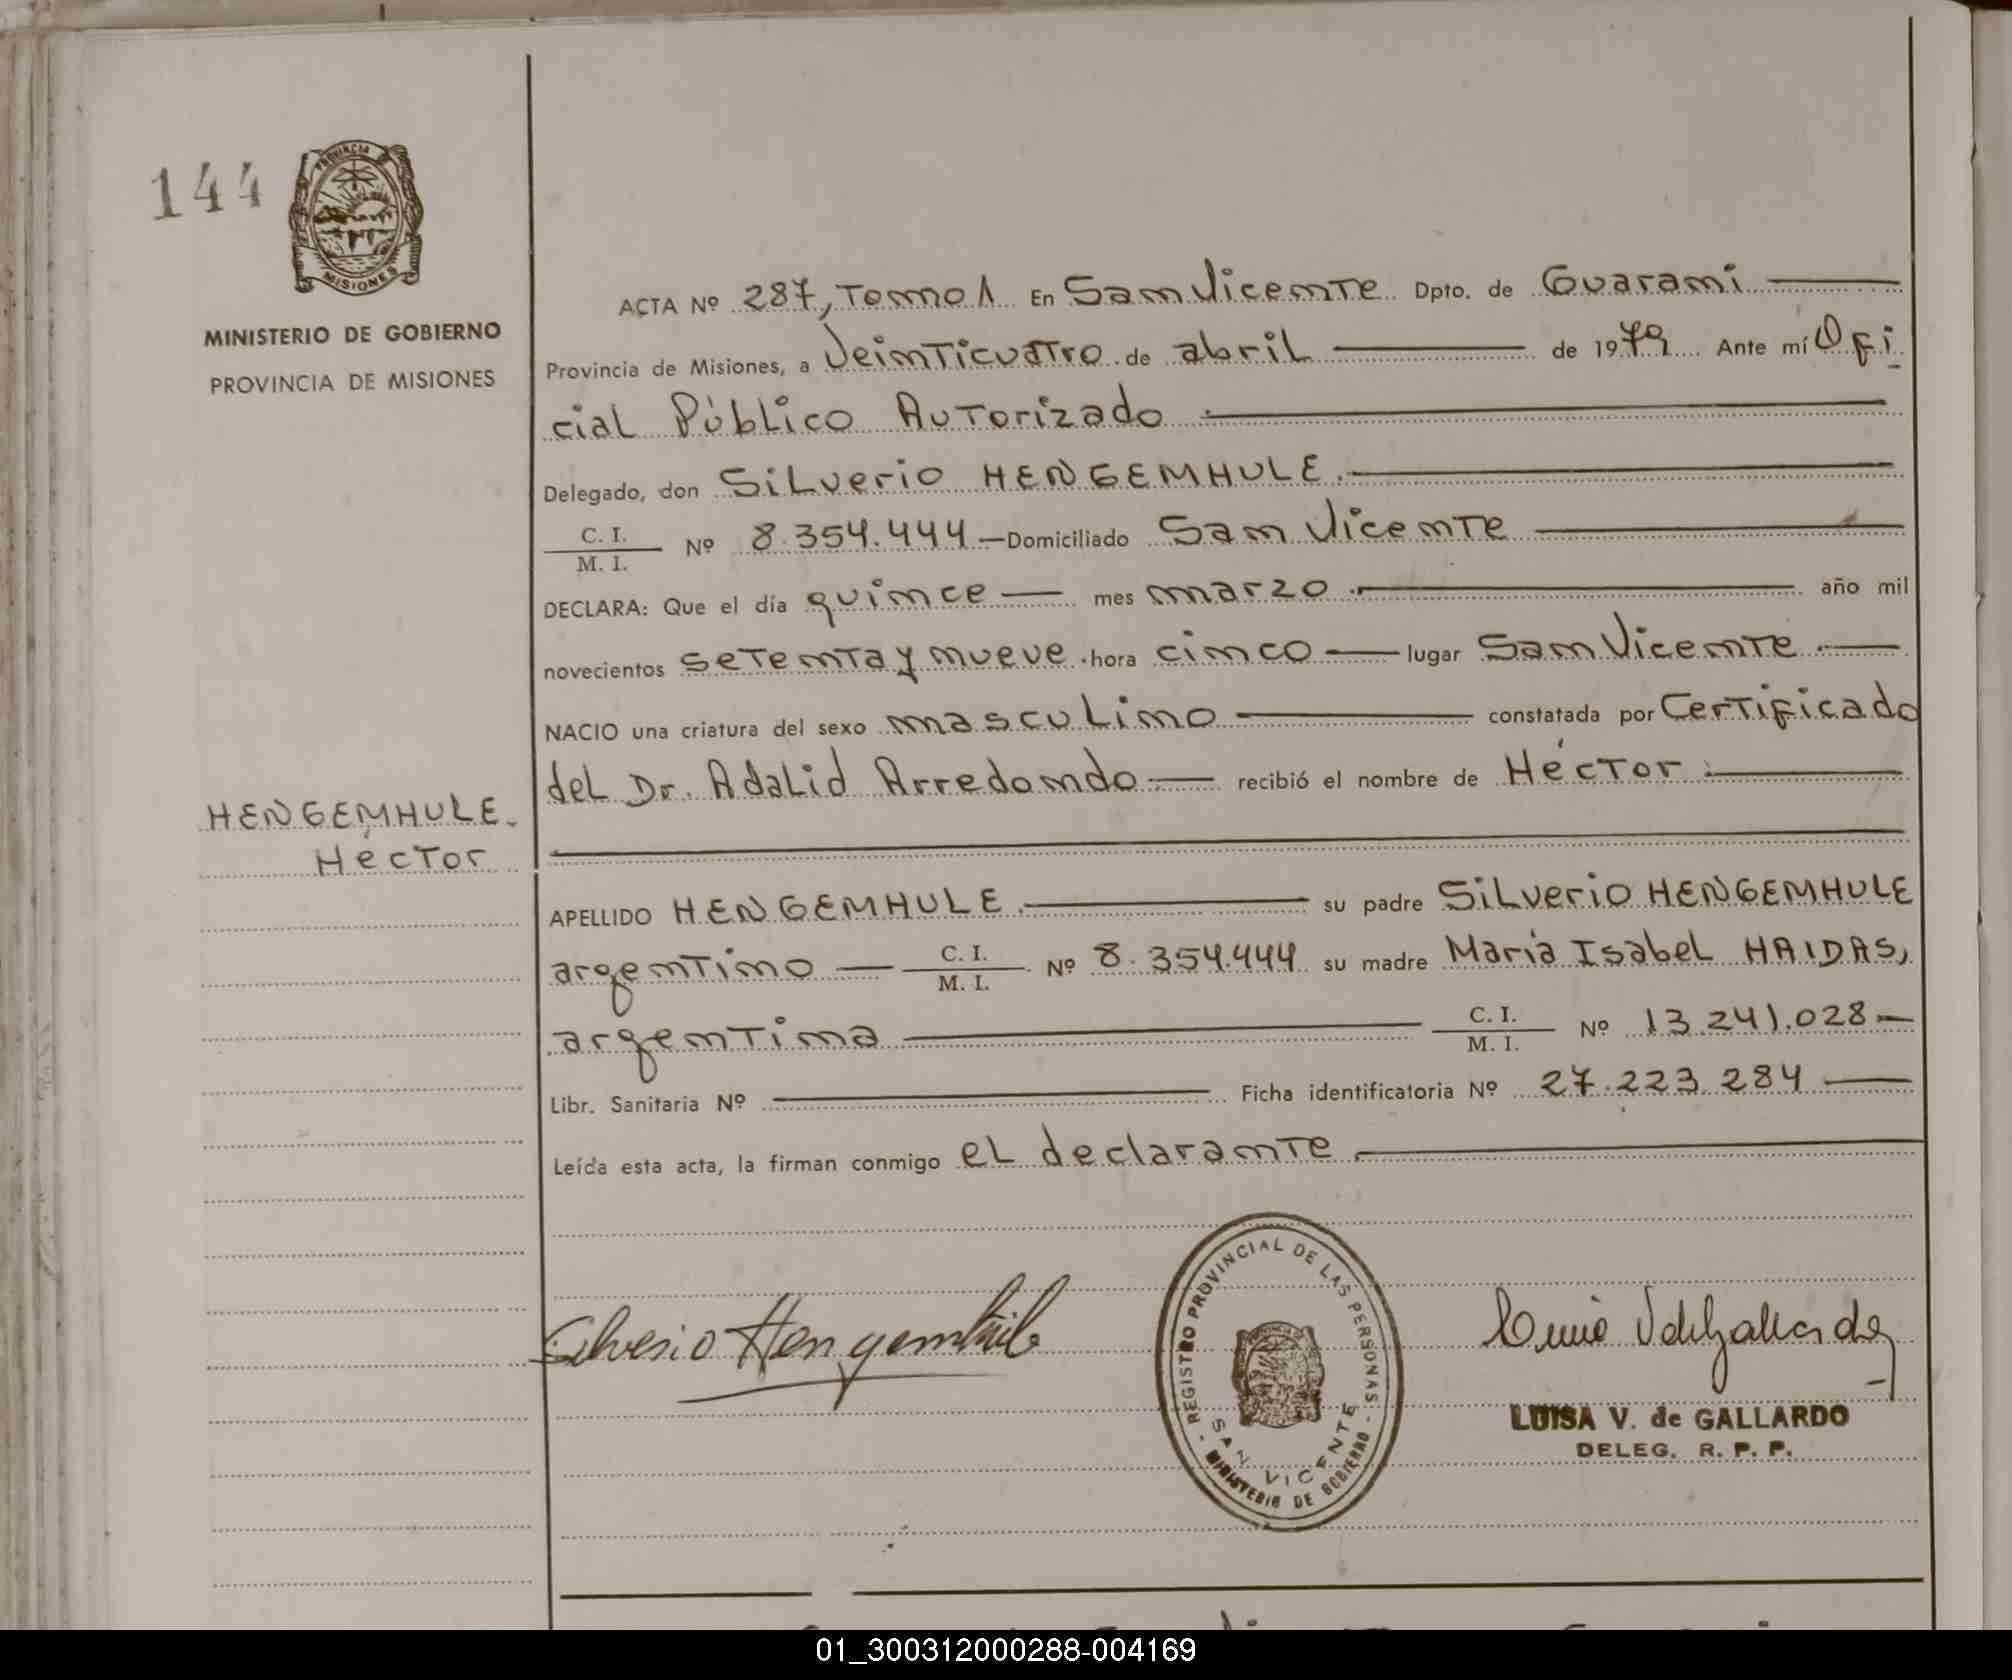 144
PROVINCIA
MISIONES
MINISTERIO DE GOBIERNO
PROVINCIA DE MISIONES
ACTA Nº 287, Tomo 1 En San Vicente Dpto. de Guaraní
Provincia de Misiones, a veinticuatro de abril de 1979 Ante mí Ofi
cial Público Autorizado
Delegado, don Silverio HENGEMHULE.
C. I.
M. I. Nº 8.354.444 Domiciliado San Vicente
DECLARA: Que el día quince mes marzo año mil
novecientos setenta y nueve hora cinco lugar San Vicente
NACIO una criatura del sexo masculino constatada por Certificado
del Dr. Adalid Arredondo recibió el nombre de Héctor
HENGEMHULE.
Héctor
APELLIDO HENGEMHULE su padre Silverio HENGEMHULE
argentino C. I. M. I. Nº 8.354.444 su madre María Isabel HAIDAS,
argentina C. I. M. I. Nº 13.241.028
Libr. Sanitaria Nº Ficha identificatoria Nº 27.223.284
Leída esta acta, la firman conmigo el declarante
Silverio Hengemhule
REGISTRO PROVINCIAL DE LAS PERSONAS
SAN VICENTE
MINISTERIO DE GOBIERNO
LUISA V. de GALLARDO
DELEG. R. P. P.
01_300312000288-004169